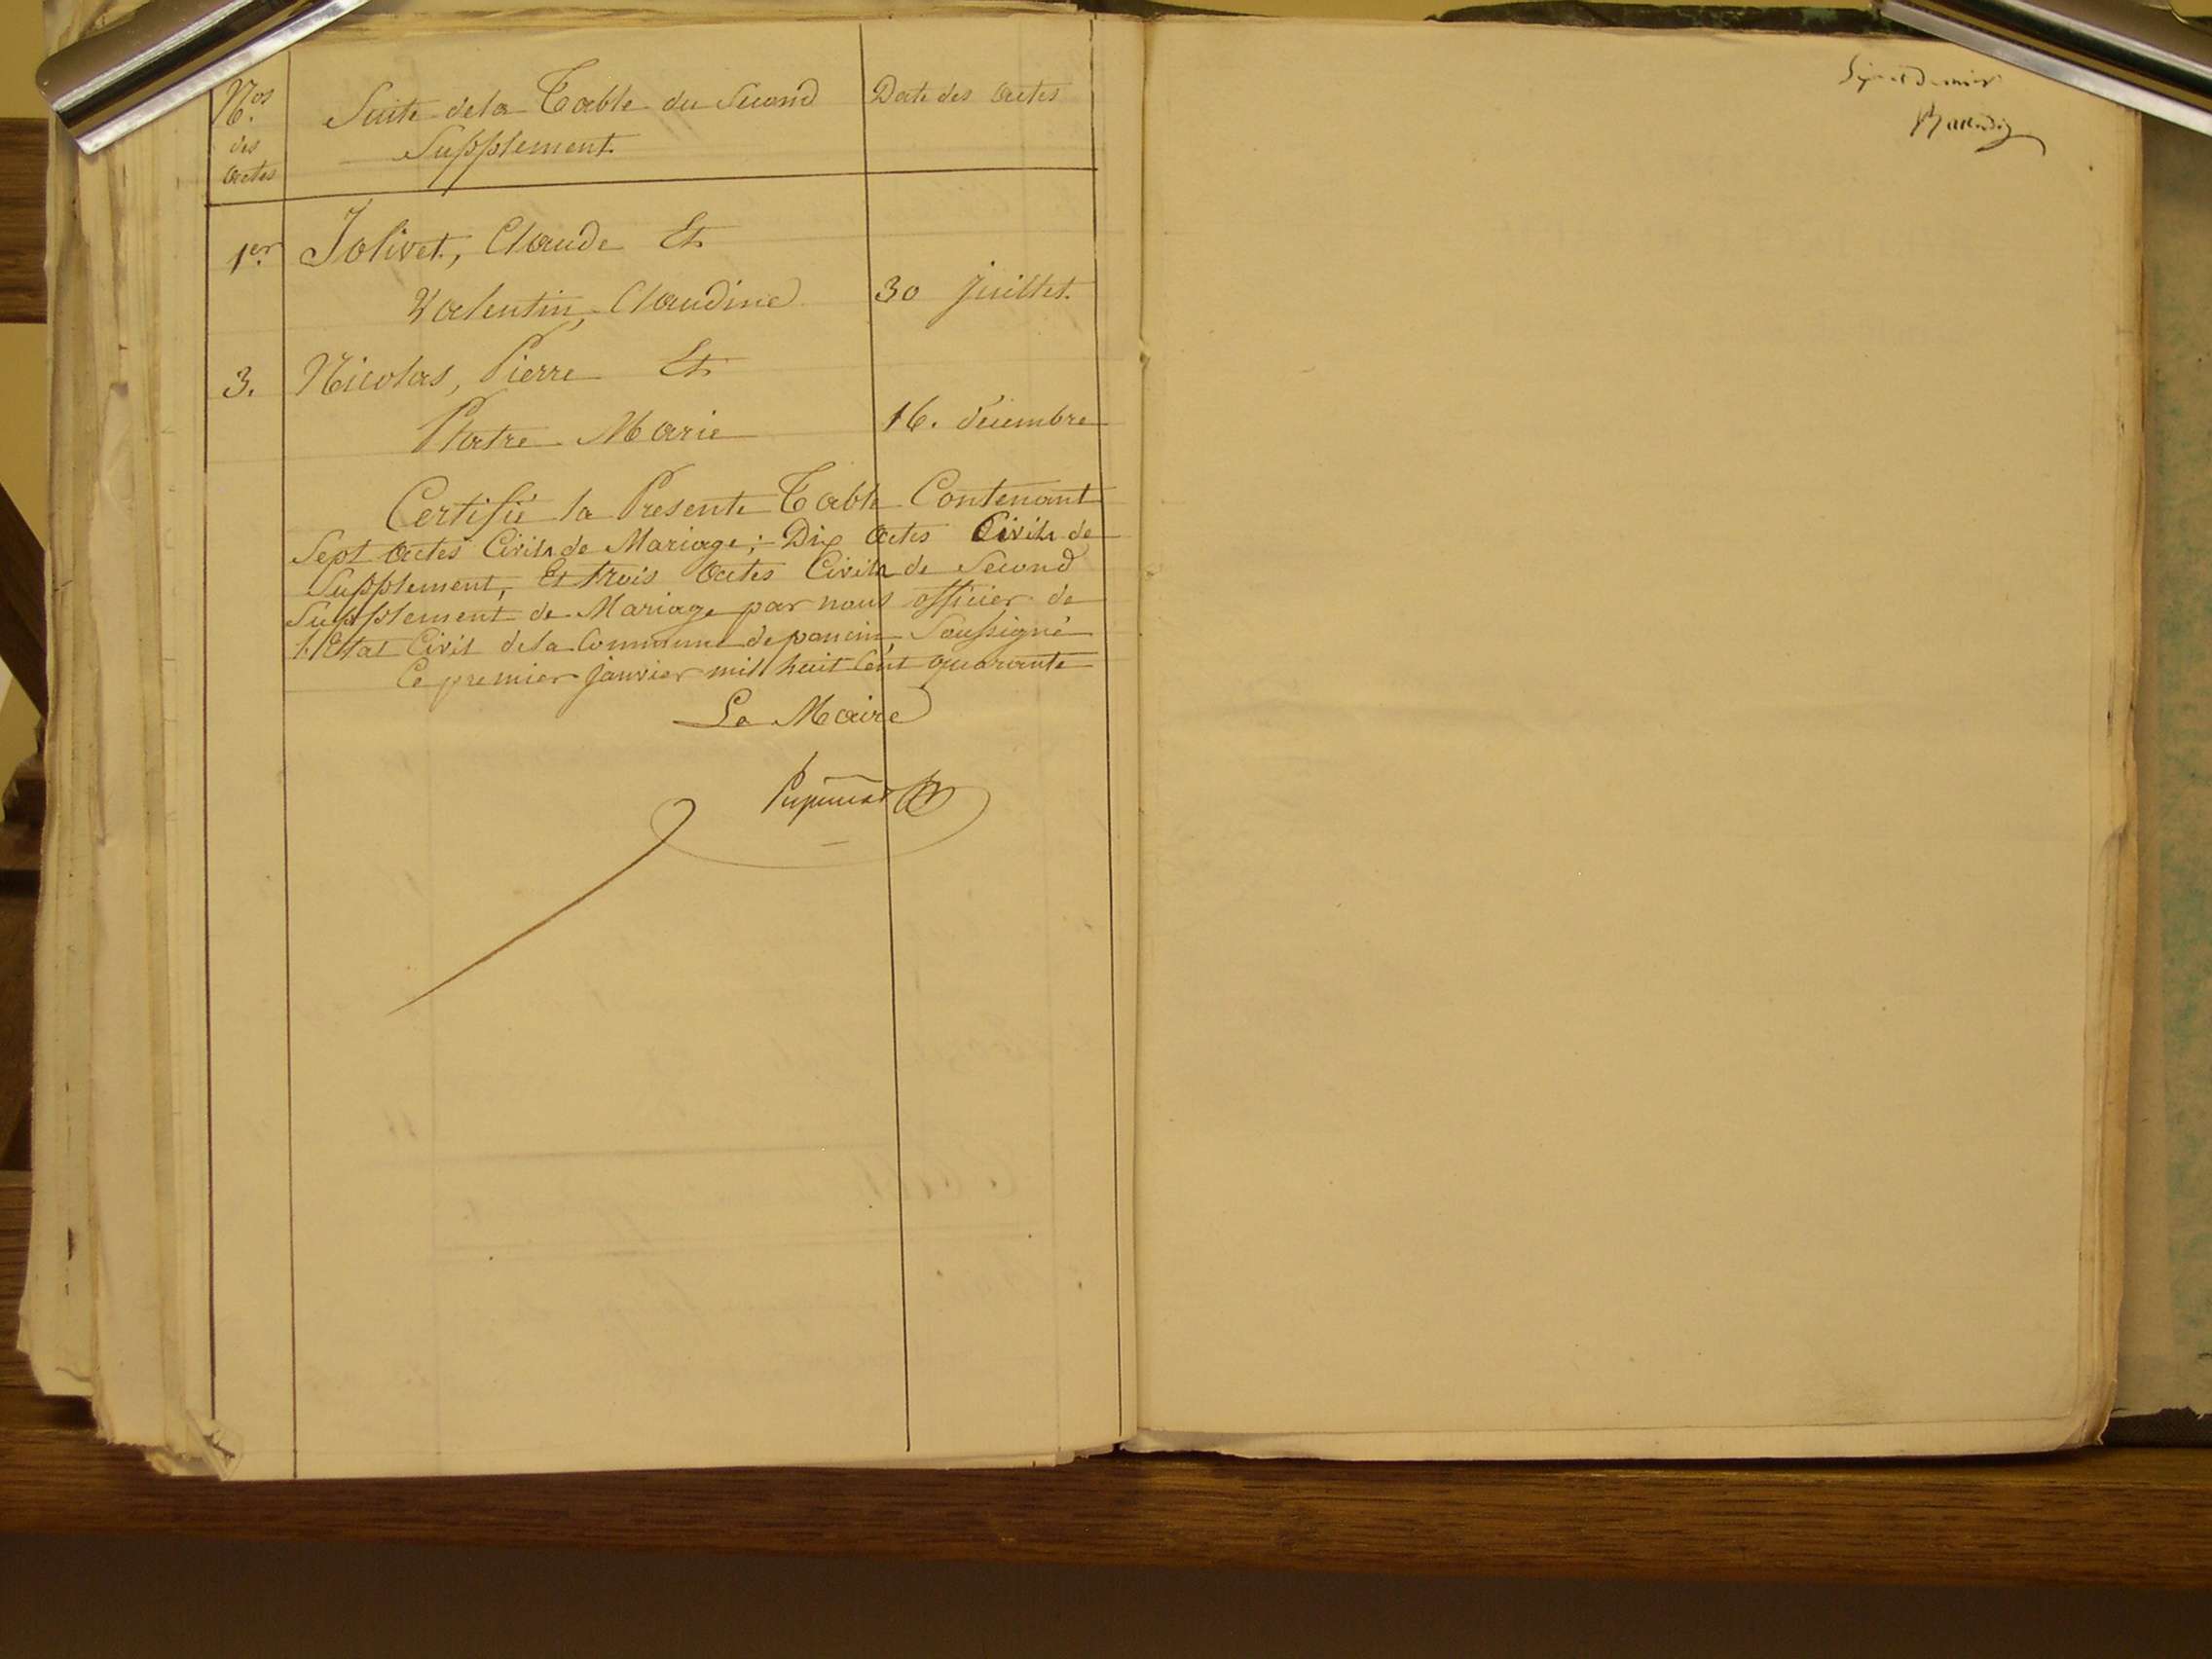 Nos
des
actes
Suite de la Table du Second
Supplement
Date des actes
1er Jolivet, Claude Et
Valentin, Claudine 30 juillet
3. Nicolas, Pierre Et
Platre Marie 16. décembre
Certifié la Presente Table Contenant
Sept actes Civils de Mariage; Dix actes Civils de
Supplement, Et trois actes Civils de Second
Supplement de Mariage par nous officier de
l'Etat Civil de la Commune de poncin Soussigné
Ce premier janvier mil huit Cent quarante
Le Maire